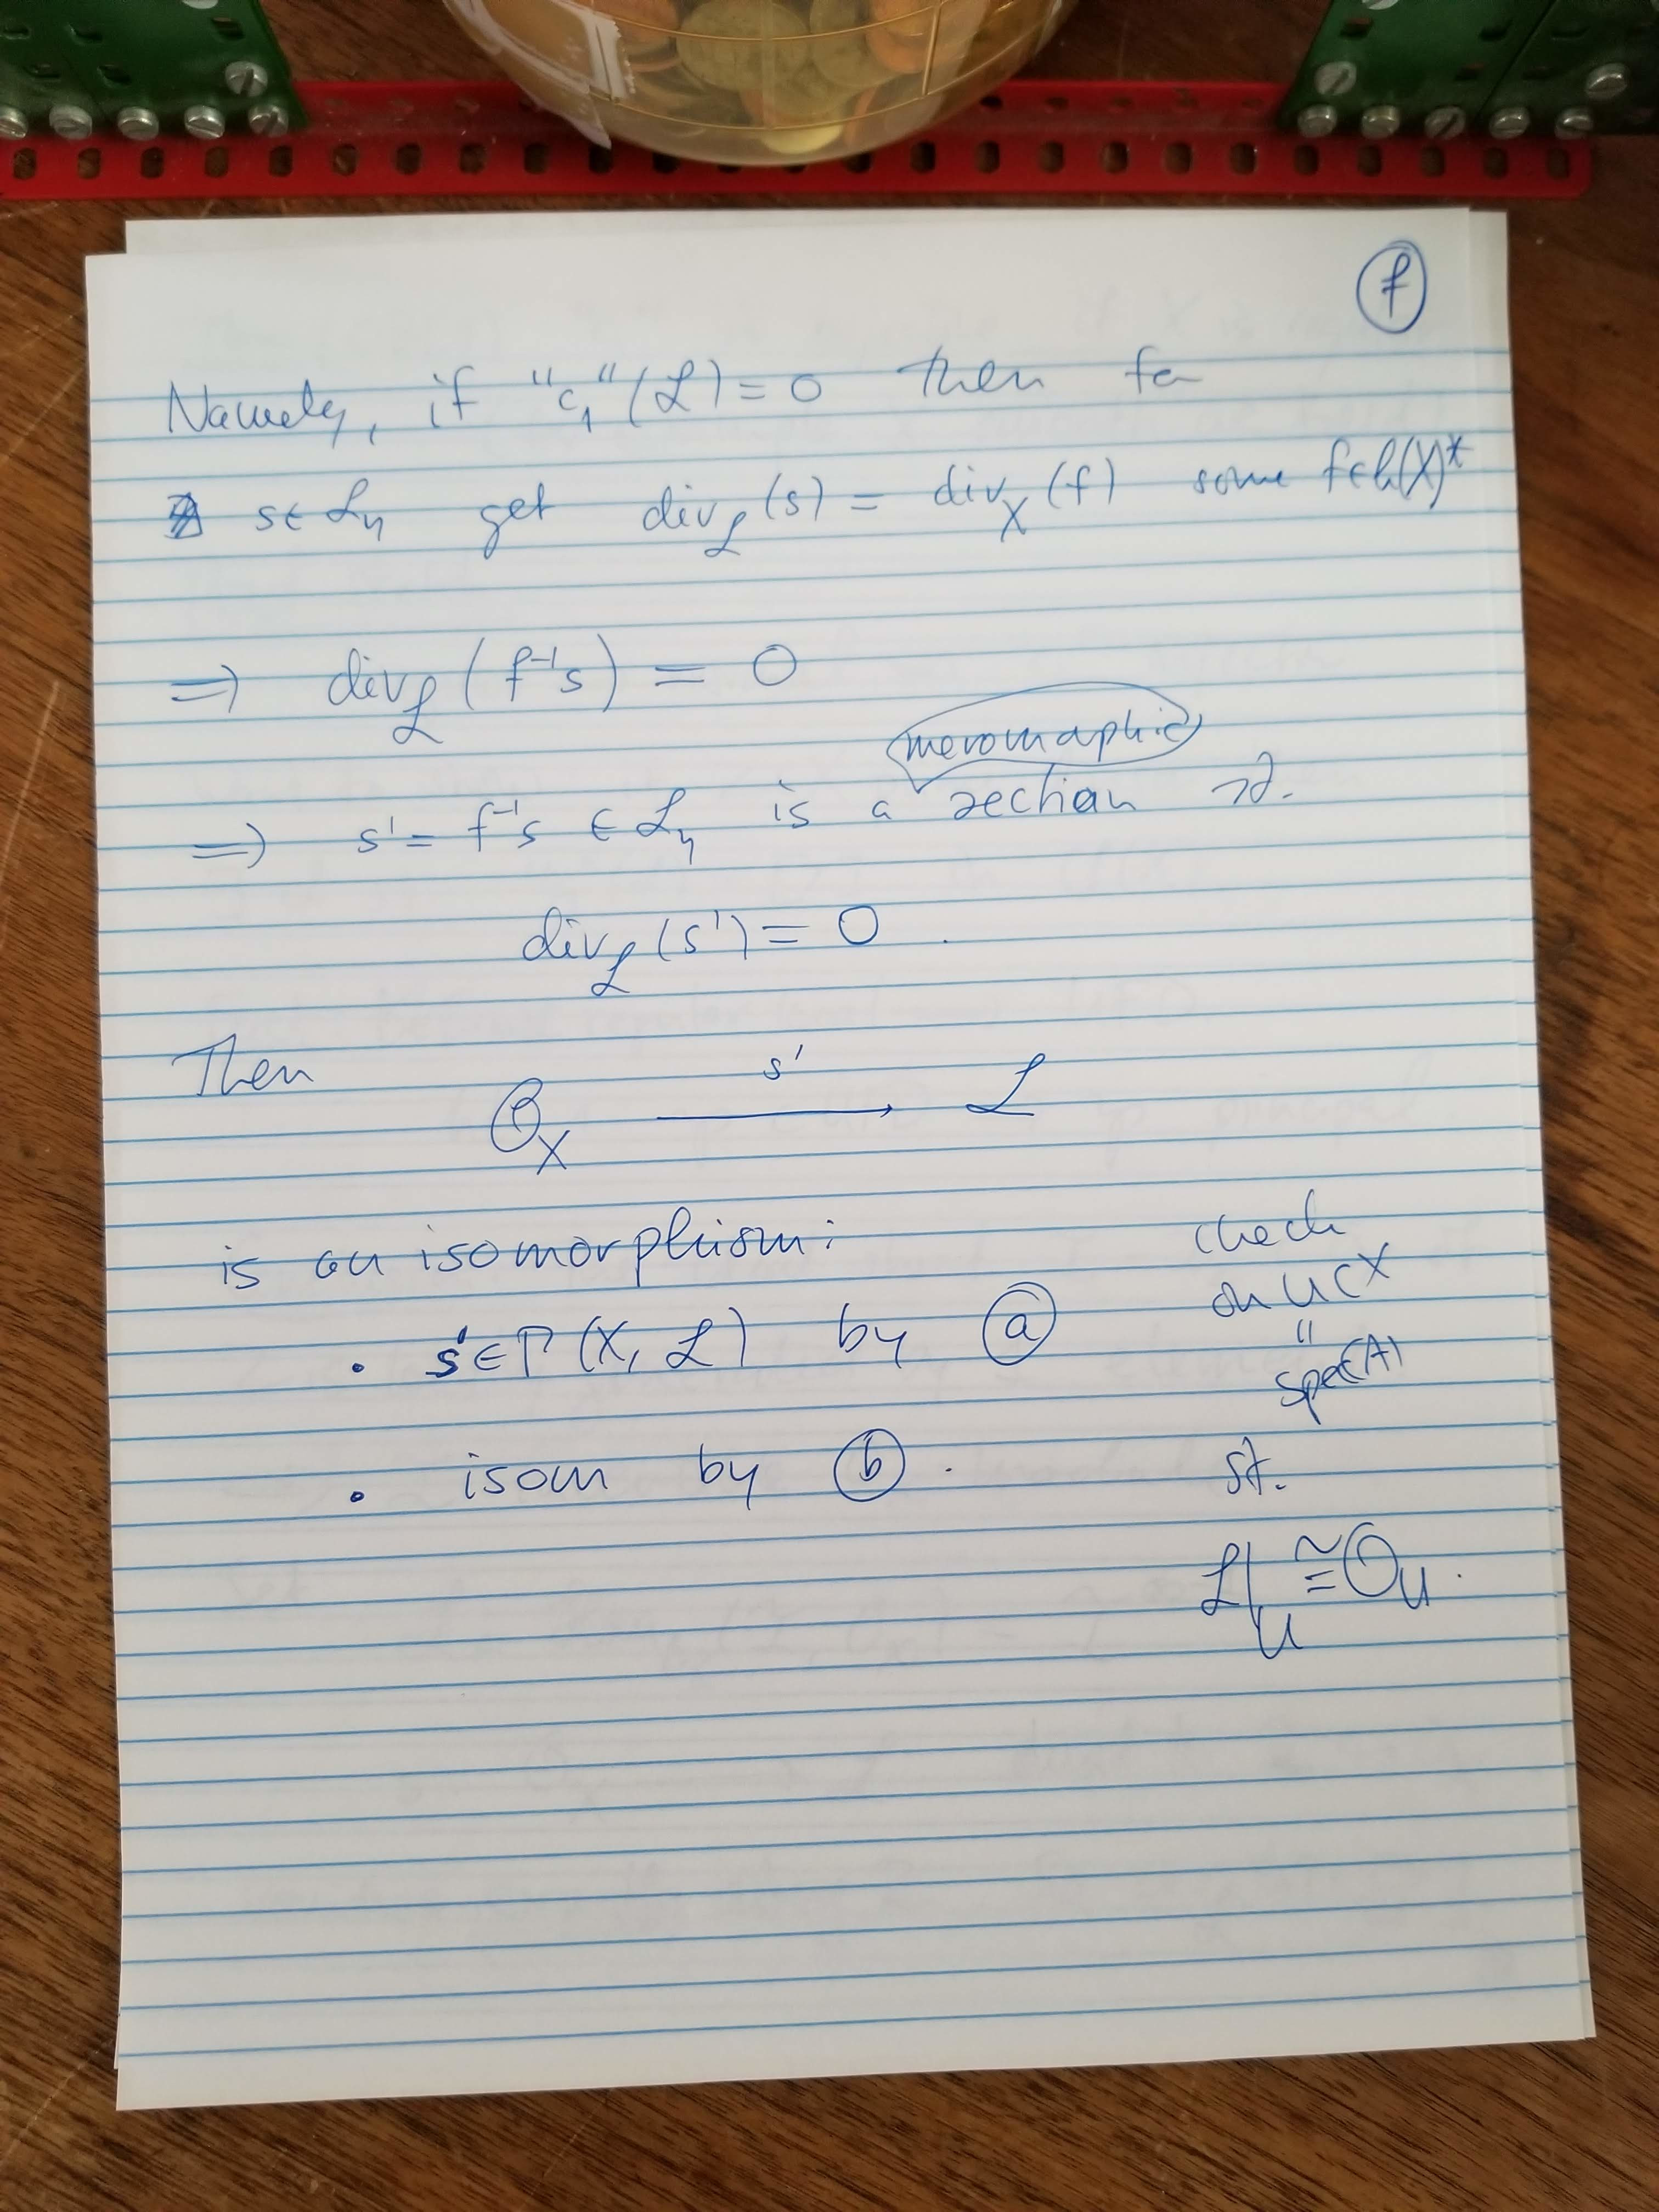 f
Namely, if "c₁"(ℒ) = 0 then for
s ∈ ℒ_η get div_ℒ(s) = div_X(f) some f ∈ k(X)*
⇒ div_ℒ(f⁻¹s) = 0
meromorphic
⇒ s' = f⁻¹s ∈ ℒ_η is a section st.
div_ℒ(s') = 0.
Then
O_X —s'→ ℒ
is an isomorphism:
• s' ∈ Γ(X, ℒ) by ⓐ
• isom by ⓑ.
check
on U ⊂ X
=
Spec(A)
st.
ℒ|_U ≅ O_U.